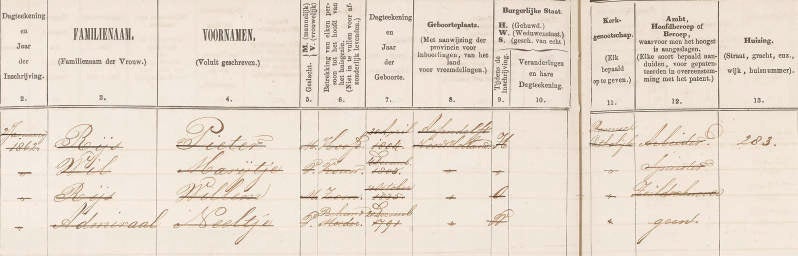 Dagteekening en Jaar der Inschrijving.
FAMILIENAAM.
(Familienaam der Vrouw.)
VOORNAMEN.
(Voluit geschreven.)
Geslacht. M. (mannelijk) V. (vrouwelijk)
Betrekking van elken persoon tot het hoofd van het huisgezin. (Niet in te vullen voor afzonderlijk levenden.)
Dagteekening en Jaar der Geboorte.
Geboorteplaats.
(Met aanwijzing der provincie voor inboorlingen, van het land voor vreemdelingen.)
Burgerlijke Staat.
H. (Gehuwd.)
W. (Weduwenstaat.)
S. (gesch. van echt.)
Tijdens de inschrijving.
Veranderingen en hare Dagteekening.
Kerkgenootschap.
(Elk bepaald op te geven.)
Ambt, Hoofdberoep of Beroep,
waarvoor men het hoogst is aangeslagen.
(Elke soort bepaald aanduiden, voor gepatenteerden in overeenstemming met het patent.)
Huizing.
(Straat, gracht, enz., wijk, huisnummer.)
2. 3. 4. 5. 6. 7. 8. 9. 10. 11. 12. 13.
1862 Rijs Pieter M. Hoofd April H Arbeider 283.
" Wil Marijtje V. Vrouw
" Rijs Willem M. Zoon
" Admiraal Neeltje V. 1791 W geen